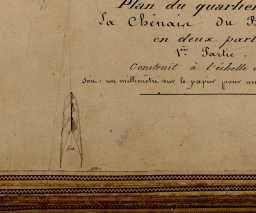 Plan du quartier
La Chênaie du
en deux part
1re Partie.
Construit à l'échelle
Soit: un millimètre sur le papier pour un